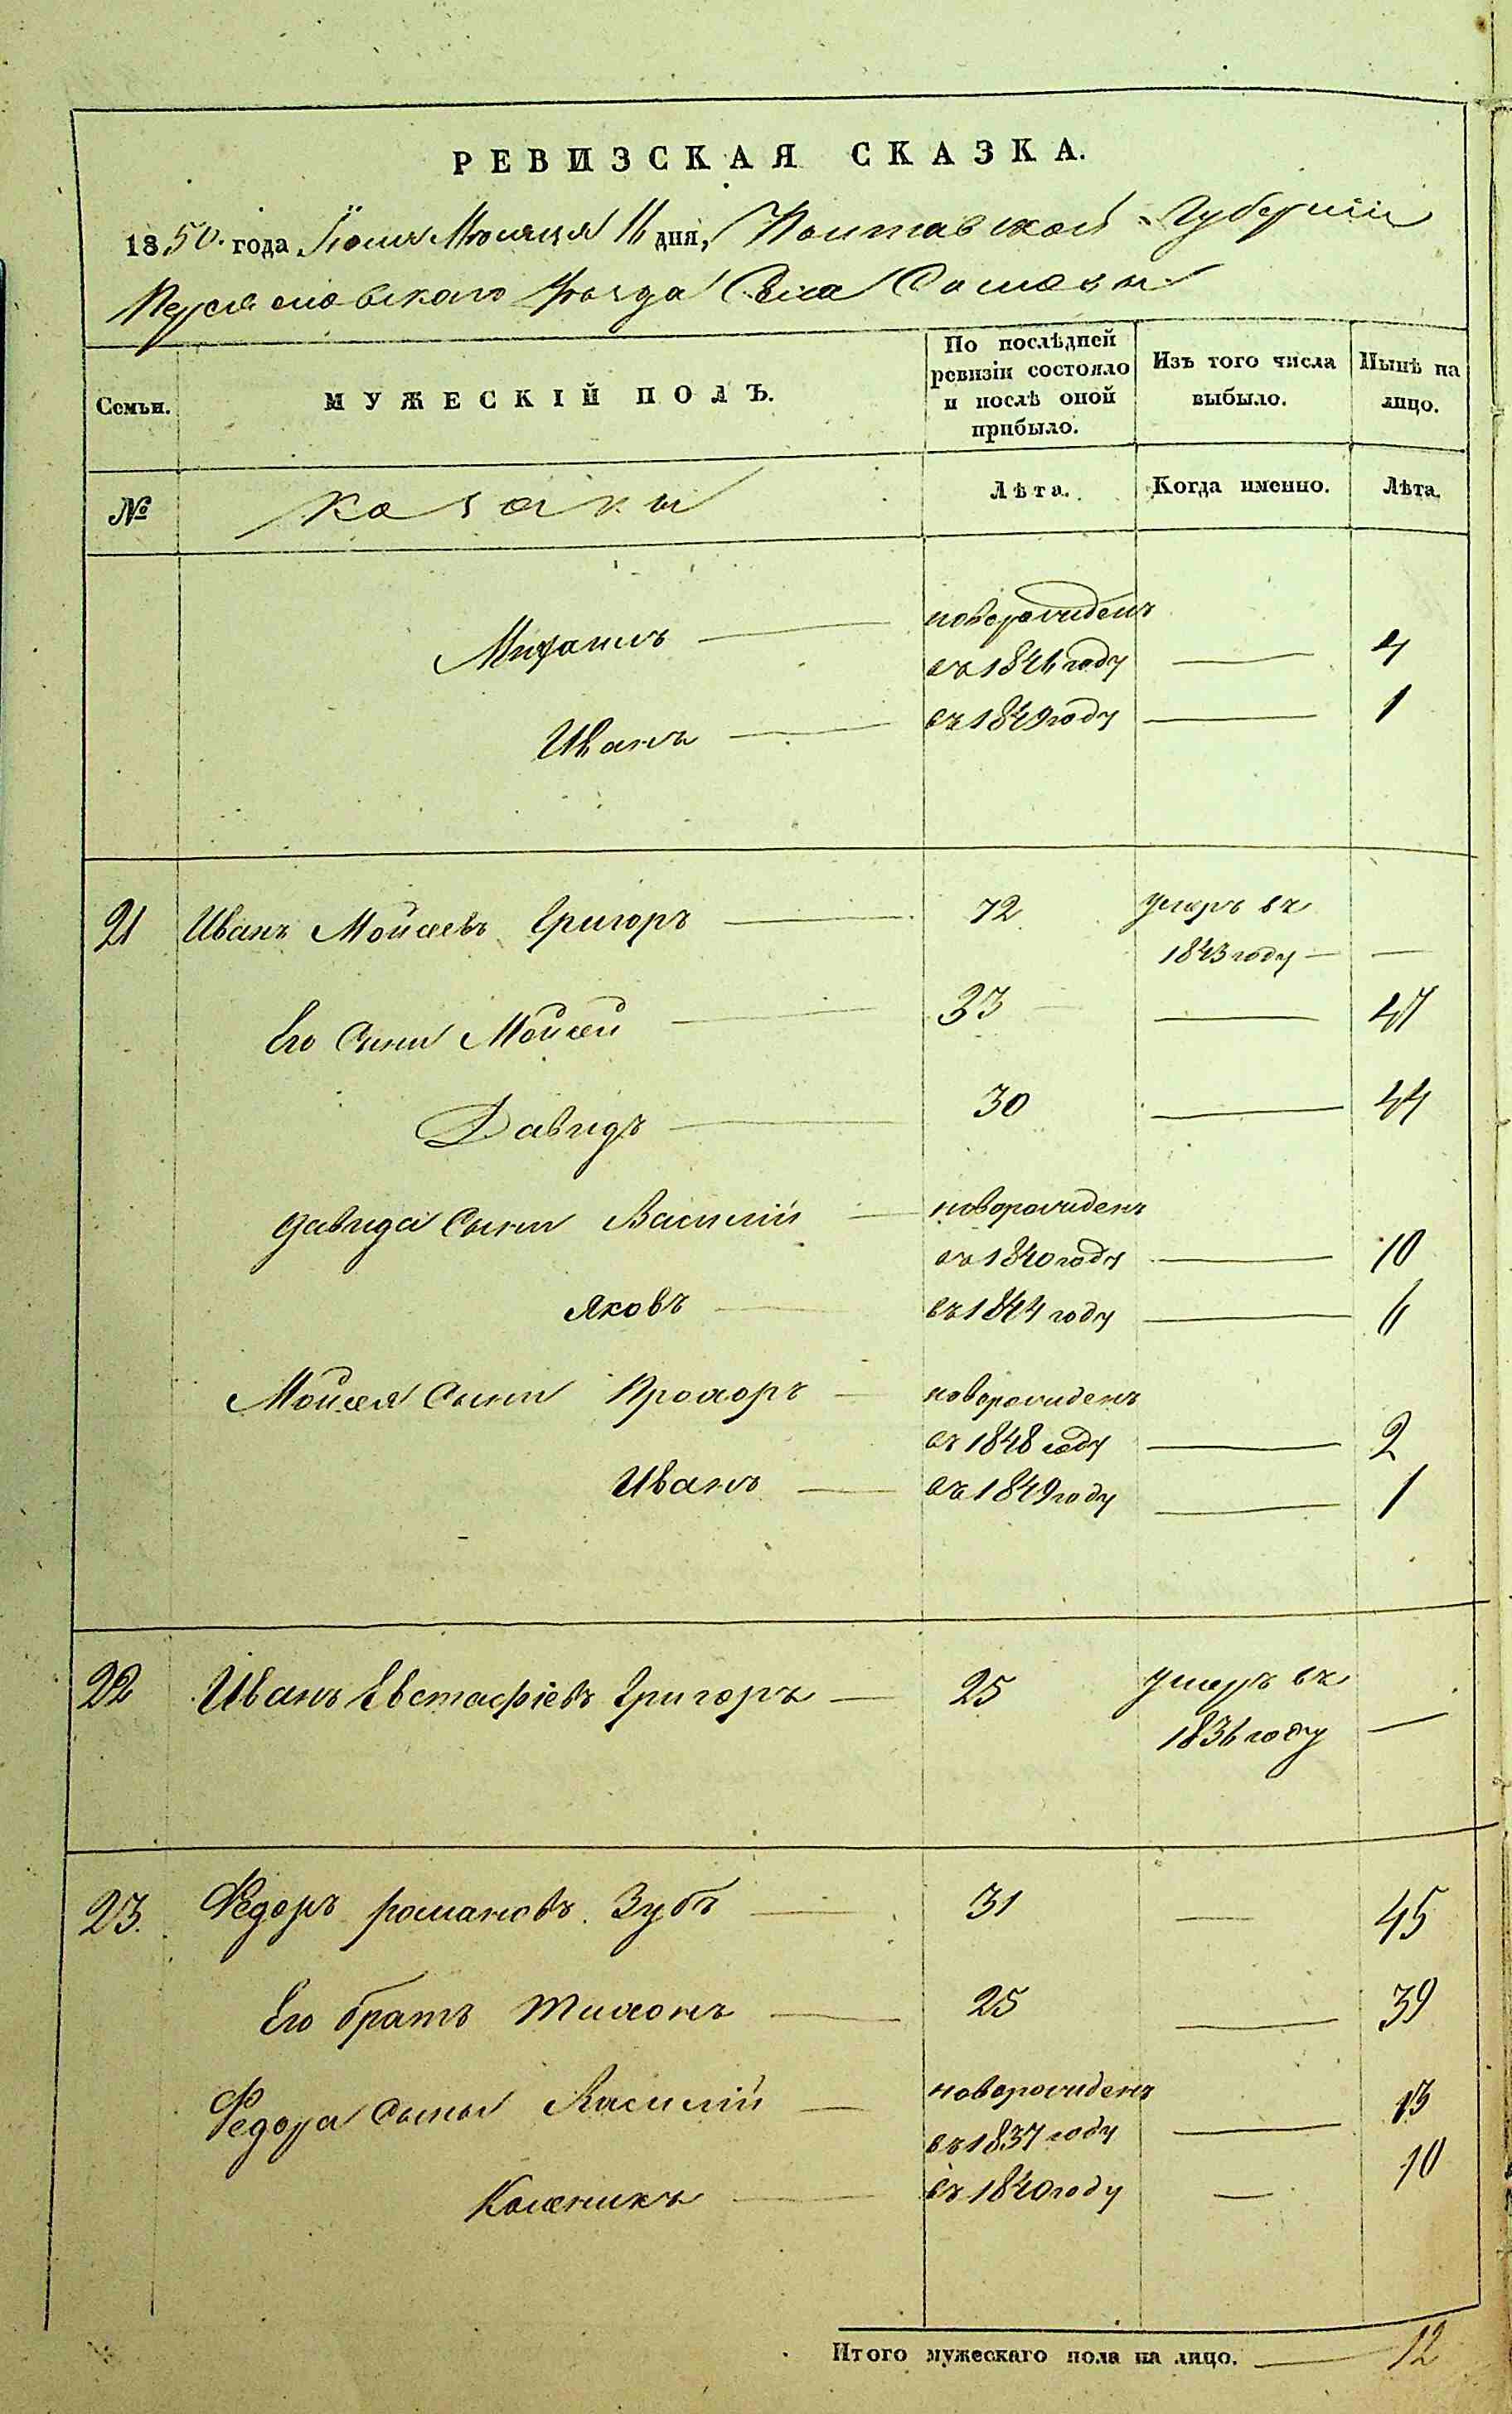 РЕВИЗСКАЯ СКАЗКА.
1850. года Іюня Мѣсяца 16 дня, Полтавской Губерніи
Переяславскаго Уѣзда Села Сомковы
Семьи.
МУЖЕСКІЙ ПОЛЪ.
По послѣдней ревизіи состояло и послѣ оной прибыло.
Изъ того числа выбыло.
Нынѣ на лицо.
№
козаки
Лѣта.
Когда именно.
Лѣта.
Михаилъ — новорожденъ
въ 1846 году — 4
Иванъ — въ 1849 году — 1
21 Иванъ Мойсеевъ Григоръ — 72 умеръ въ
1843 году — —
Его Сыни Мойсей — 33 — 47
Давидъ — 30 — 44
Давида Сыни Василій — новорожденъ
въ 1840 году — 10
Яковъ — въ 1844 году — 6
Мойсея Сыни Прохоръ — новорожденъ
въ 1848 году — 2
Иванъ — въ 1849 году — 1
22 Иванъ Евстафіевъ Григоръ — 25 умеръ въ
1836 году —
23. Федоръ романовъ Зубъ — 31 — 45
Его братъ Тихонъ — 25 — 39
Федора Сыны Василій — новорожденъ
въ 1837 году — 13
Каленикъ — въ 1840 году — 10
Итого мужескаго пола на лицо. — 12